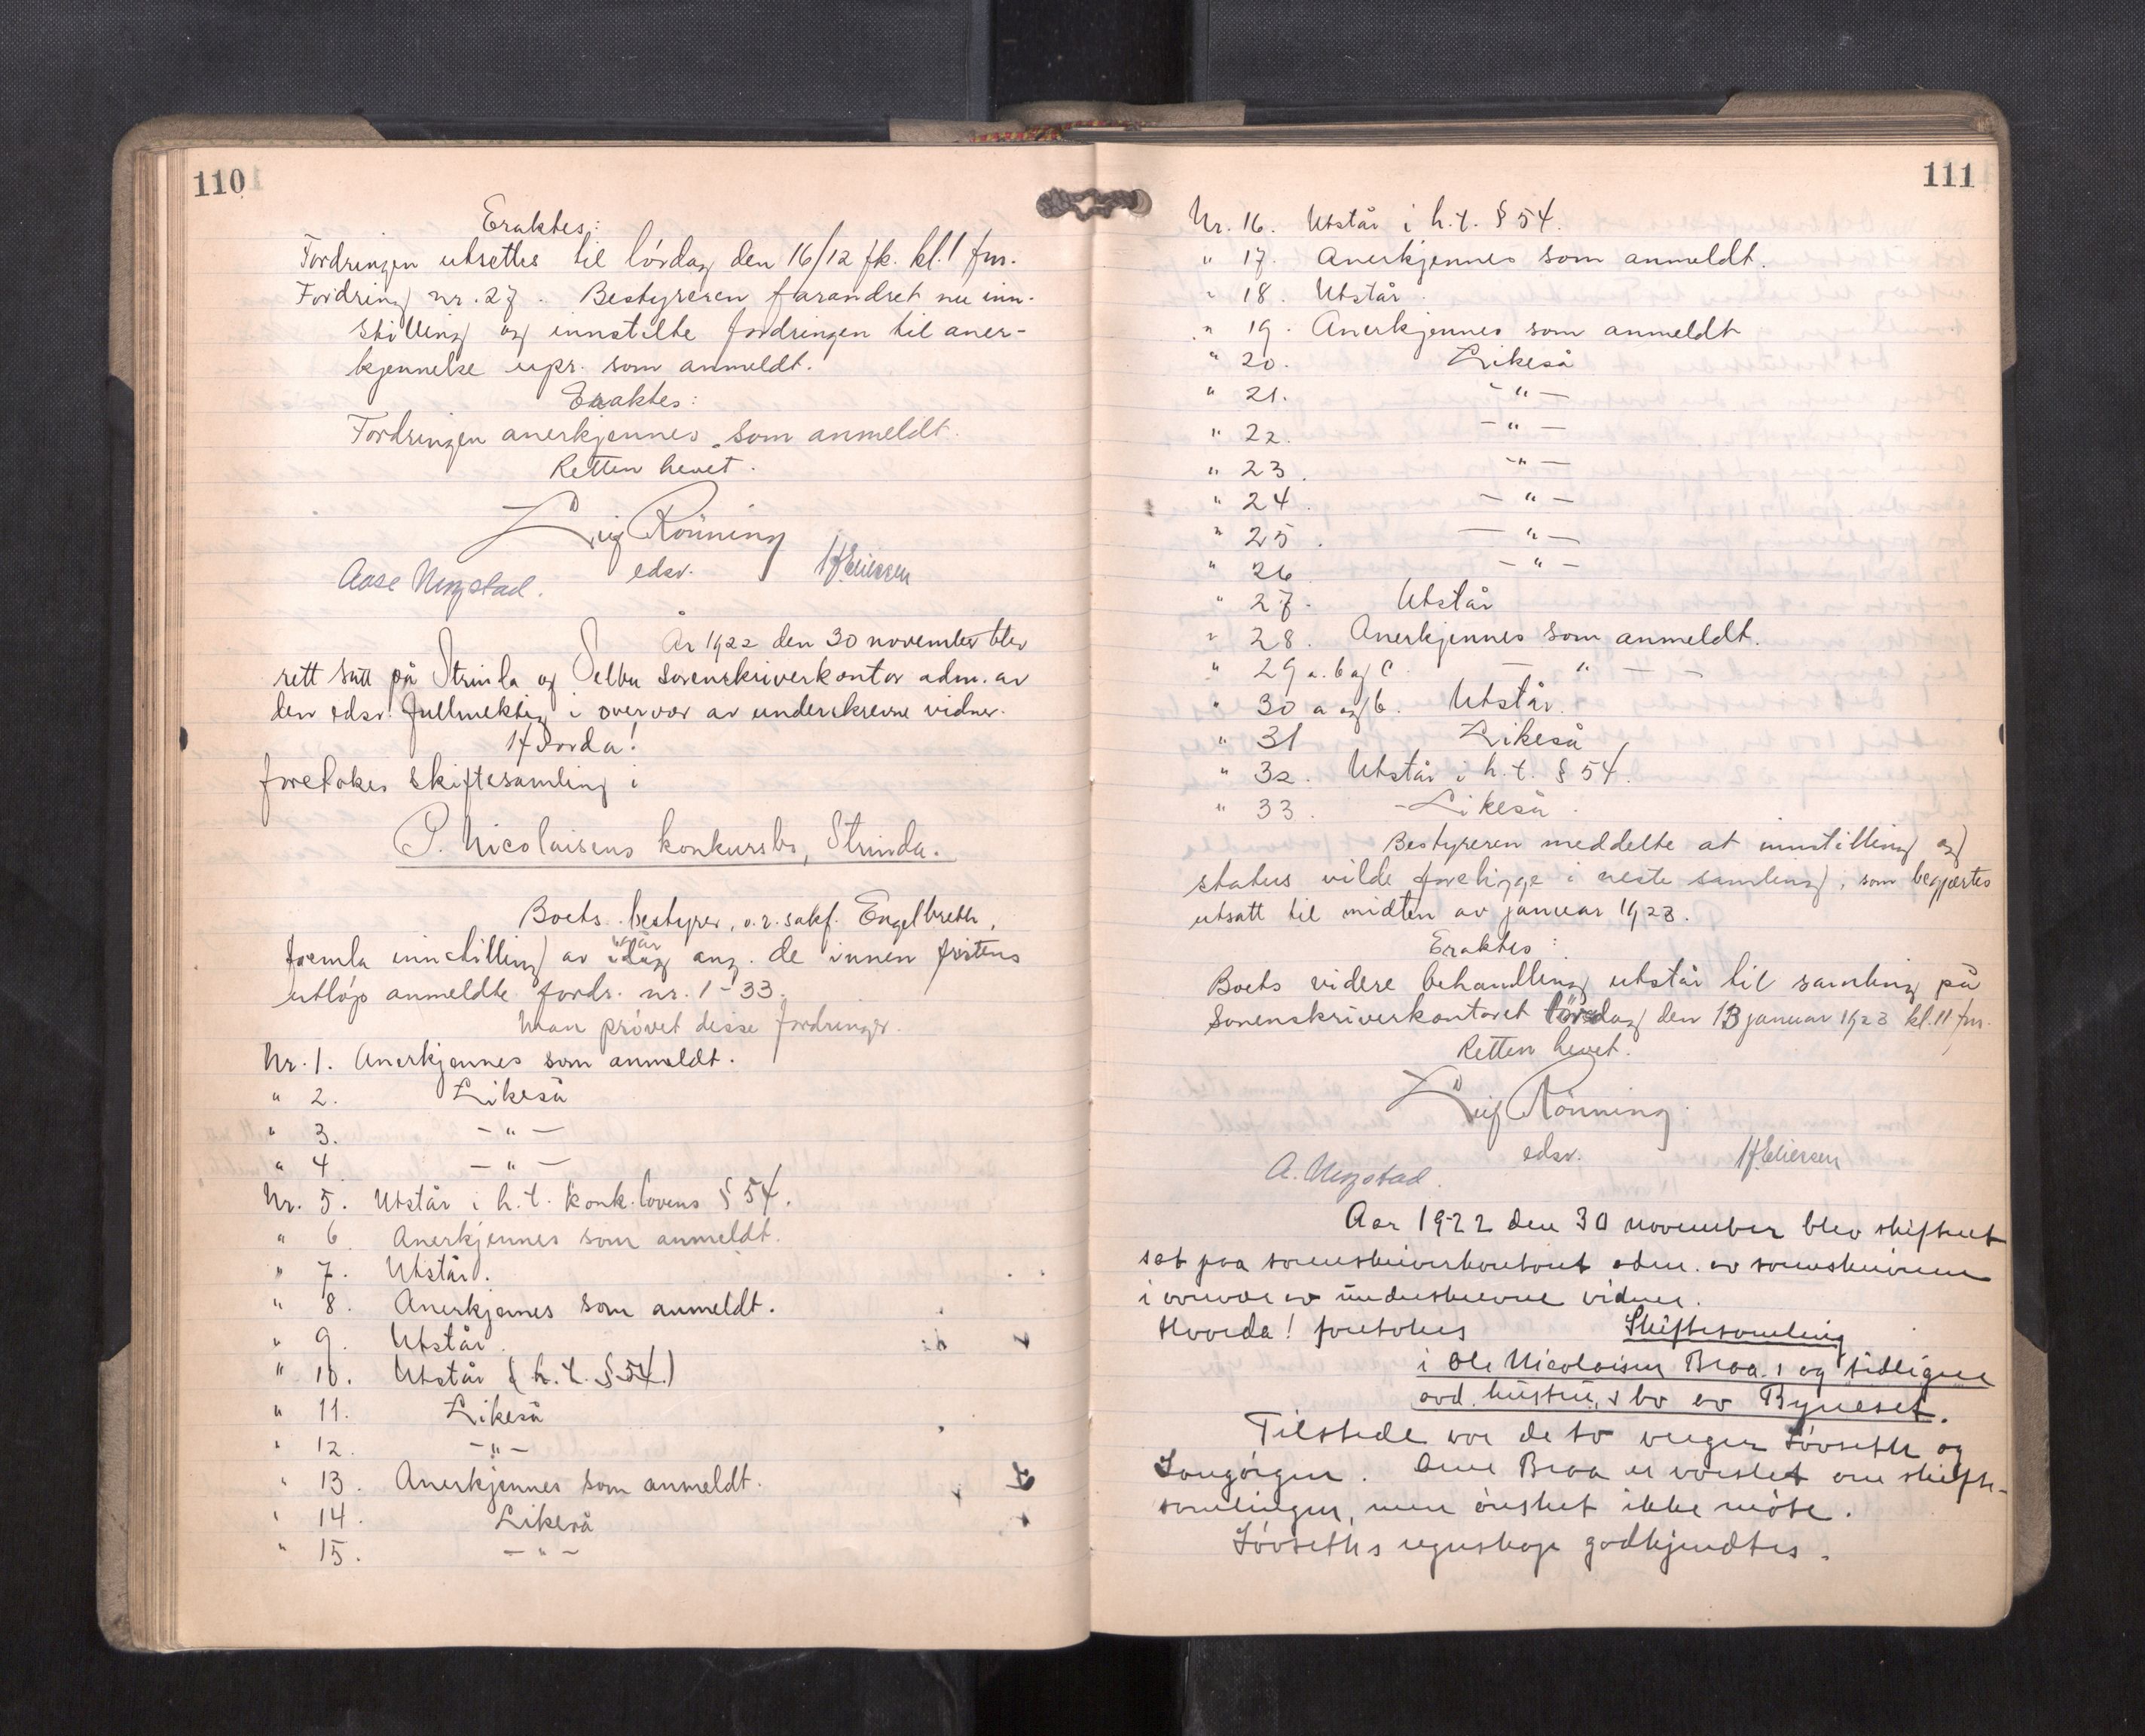 110
Eraktes:
Fordringen utsettes til lørdag den 16/12 fk. kl. 1 fm.
Fordring nr. 27. Bestyreren forandret nu inn-
stilling og innstilte fordringen til aner-
kjennelse upr. som anmeldt.
Eraktes:
Fordringen anerkjennes som anmeldt.
Retten hevet.
Leif Rönning
edsv.
Aase Ningstad.
H Eliessen
År 1922 den 30 november blev
rett satt på Strinda og Selbu sorenskriverkontor adm. av
den edsv. fullmektig i overvær av underskrevne vidner.
Hvorda!
foretokes skiftesamling i
P. Nicolaisens konkursbo, Strinda.
Boets bestyrer, o.r.sakf. Engelbreth,
fremla innstilling av igår ang. de innen fristens
utløp anmeldte fordr. nr. 1-33.
Man prøvet disse fordringer.
Nr. 1. Anerkjennes som anmeldt.
" 2. Likeså
" 3. -"-
" 4 -"-
Nr. 5. Utstår i h.t. konk.lovens § 54.
" 6 Anerkjennes som anmeldt.
" 7. Utstår.
" 8. Anerkjennes som anmeldt.
" 9. Utstår.
" 10. Utstår (h.t. § 54.)
" 11. Likeså
" 12. -"-
" 13. Anerkjennes som anmeldt.
" 14. Likeså
" 15. -"-
111
Nr. 16. Utstår i h.t. § 54.
" 17. Anerkjennes som anmeldt.
" 18. Utstår.
" 19. Anerkjennes som anmeldt
" 20. Likeså
" 21. -"-
" 22. -"-
" 23. -"-
" 24. -"-
" 25. -"-
" 26 -"-
" 27. Utstår
" 28. Anerkjennes som anmeldt.
" 29 a. b og c. - " - -
" 30 a og b. Utstår.
" 31 Likeså
" 32. Utstår i h.t. § 54.
" 33. -Likeså.
Bestyreren meddelte at innstilling og
status vilde foreligge i neste samling, som begjærtes
utsatt til midten av januar 1923.
Eraktes:
Boets videre behandling utstår til samling på
Sorenskriverkontoret lørdag den 13 januar 1923 kl. 11 fm.
Retten hevet.
Leif Rönning.
edsv.
A. Ningstad.
H Eliessen
Aar 1922 den 30 november blev skifteret
sat paa sorenskriverkontoret adm. av sorenskriveren
i overvær av underskrevne vidner.
Hvorda! foretokes Skiftesamling
i Ole Nicolaisen Braa s og tidligere
avd. hustru, s bo av Byneset.
Tilstede var de to verger Løvseth og
Langørgen. Arne Braa er varslet om skifte-
samlingen, men ønsket ikke møte.
Løvseths regnskap godkjendtes.